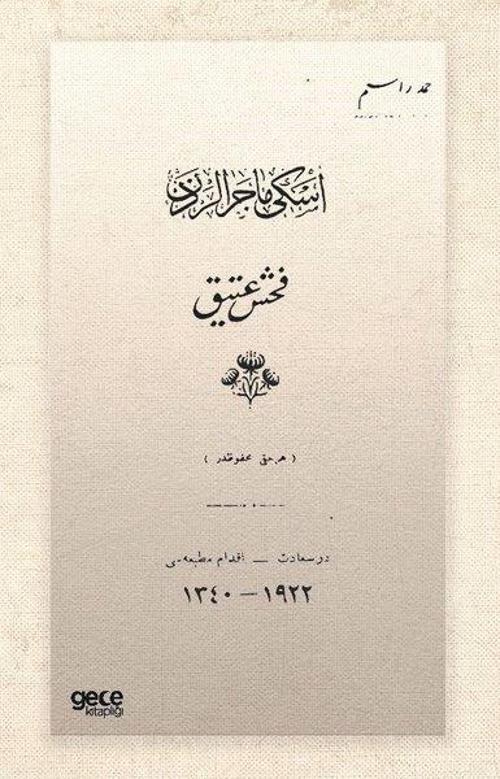 حمد راسم
اسكى ماجرالردن
فحش عتيق
( هر حقى محفوظدر )
درسعادت — اقدام مطبعه‌سى
١٩٢٢ — ١٣٤٠
gece
kitaplığı